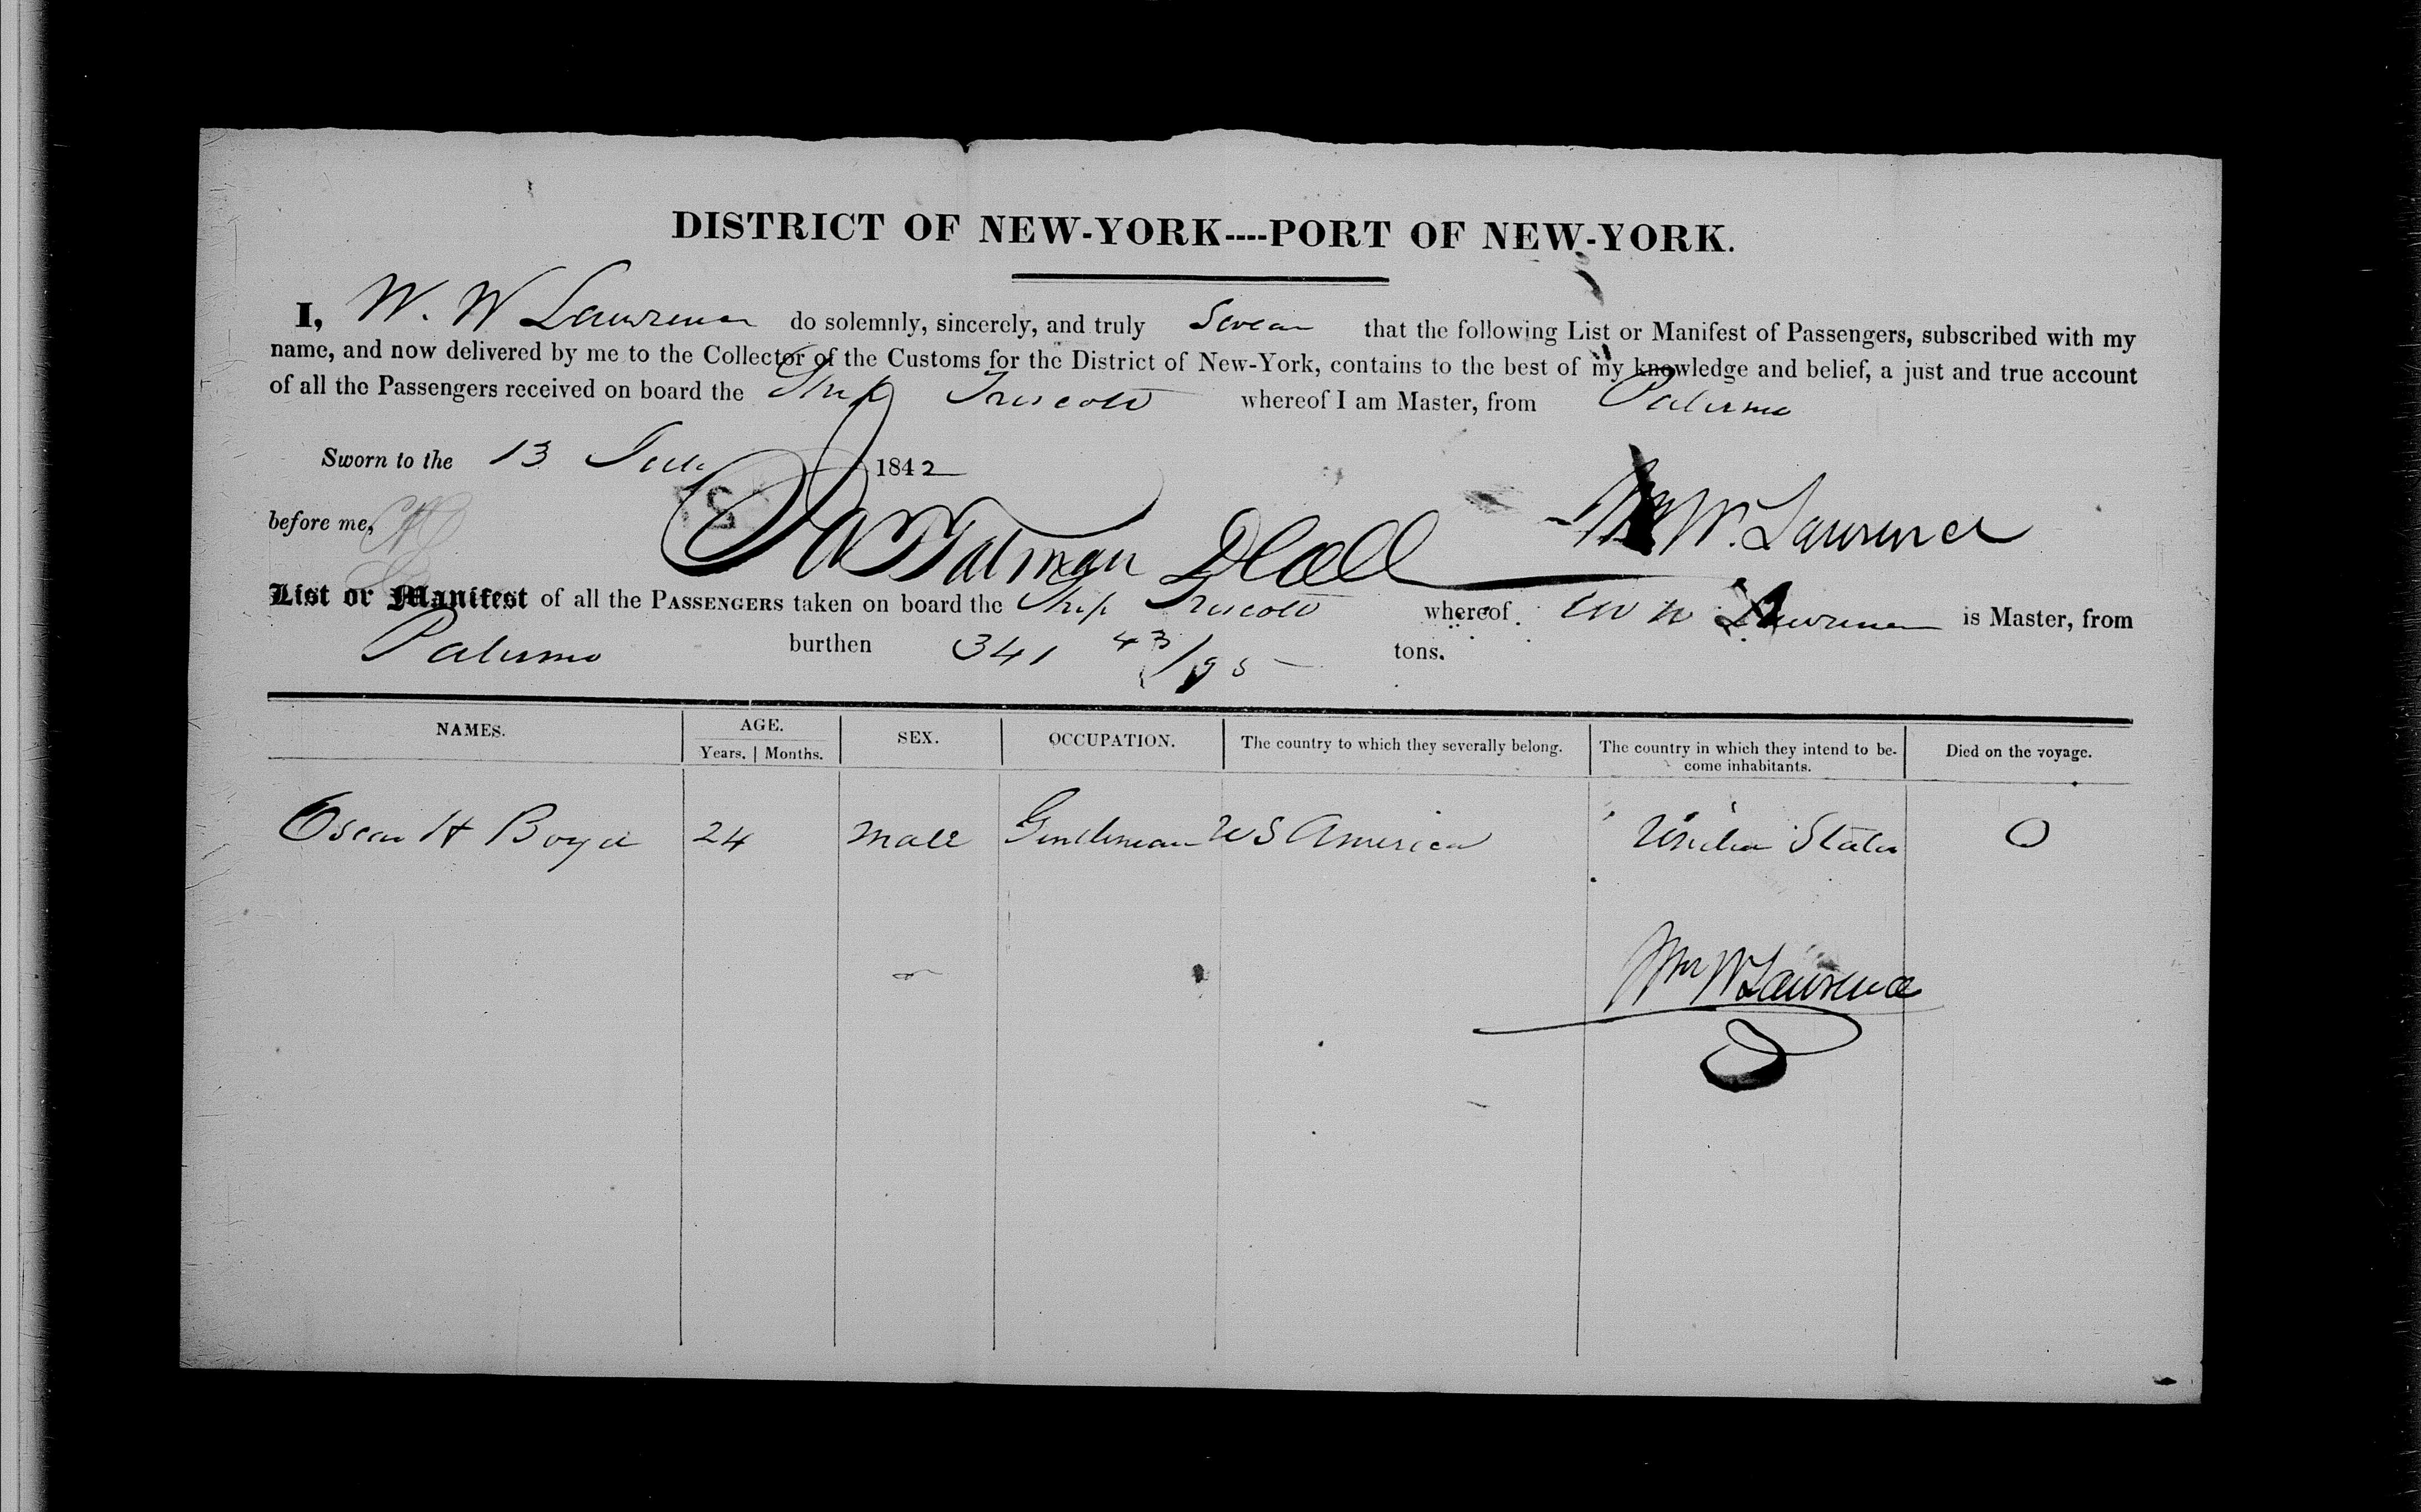 DISTRICT OF NEW-YORK----PORT OF NEW-YORK.
I, W. W Lawrence do solemnly, sincerely, and truly Swear that the following List or Manifest of Passengers, subscribed with my
name, and now delivered by me to the Collector of the Customs for the District of New-York, contains to the best of my knowledge and belief, a just and true account
of all the Passengers received on board the Ship Trescott whereof I am Master, from Palermo
Sworn to the 13 July 1842
before me, Wm W. Lawrence
List or Manifest of all the PASSENGERS taken on board the Ship Trescott whereof W W Lawrence is Master, from
Palermo burthen 341 43/95 tons.
NAMES. AGE. SEX. OCCUPATION. The country to which they severally belong. The country in which they intend to be- Died on the voyage.
Years. | Months. come inhabitants.
Oscar H Boyd 24 male Gentleman U S America United States O
Wm W Lawrence